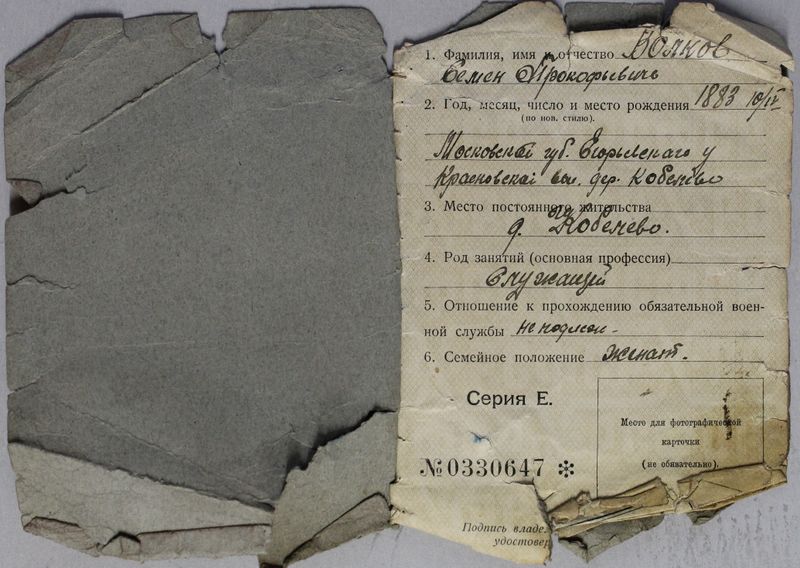 1. Фамилия, имя и отчество Волков
Семен Прокофьевичъ
2. Год, месяц, число и место рождения 1883 10/IV
(по нов. стилю).
Московской губ. Егорьевскаго у
вол. дер. Кобенево
3. Место постоянного жительства
д. Кобенево.
4. Род занятий (основная профессия)
Служащий
5. Отношение к прохождению обязательной воен-
ной службы не подлеж-
6. Семейное положение женат.
Серия Е.
Место для фотографической
карточки
(не обязательно).
№ 0330647 *
Подпись владел
удостовер